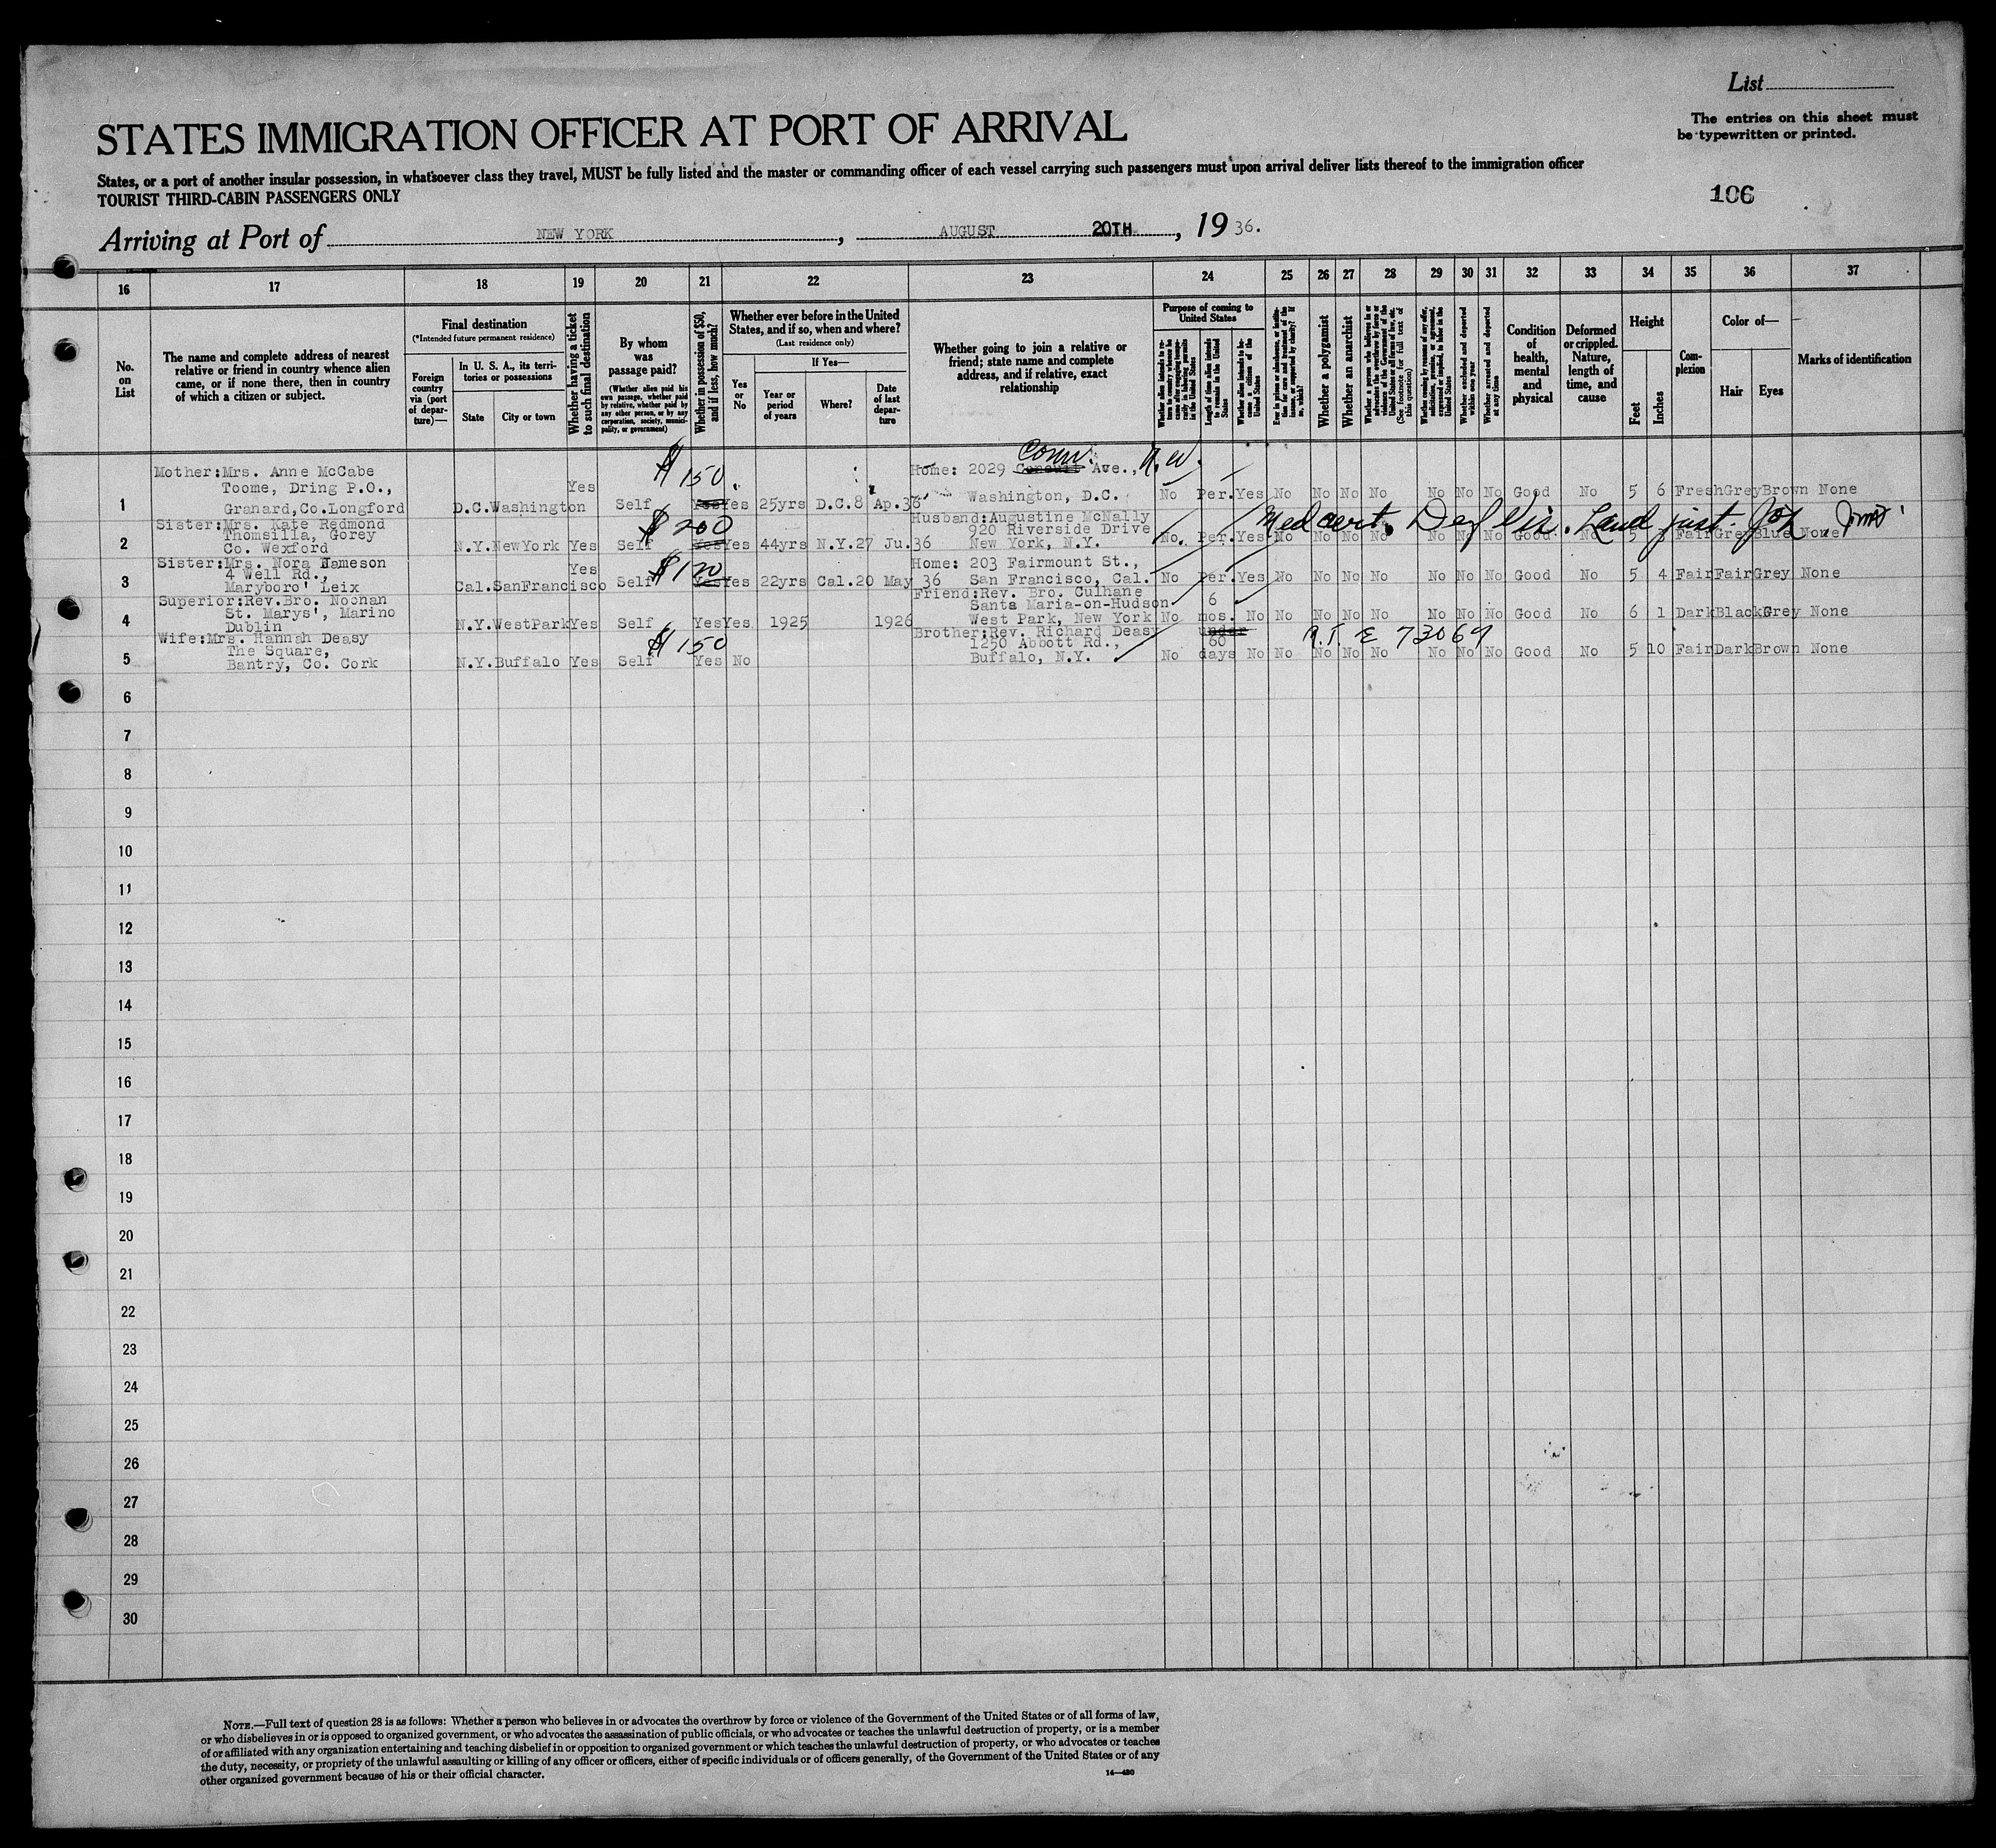 List
The entries on this sheet must
be typewritten or printed.
STATES IMMIGRATION OFFICER AT PORT OF ARRIVAL
States, or a port of another insular possession, in whatsoever class they travel, MUST be fully listed and the master or commanding officer of each vessel carrying such passengers must upon arrival deliver lists thereof to the immigration officer
TOURIST THIRD-CABIN PASSENGERS ONLY
106
Arriving at Port of NEW YORK, AUGUST 20TH, 19 36.
16 17 18 19 20 21 22 23 24 25 26 27 28 29 30 31 32 33 34 35 36 37
No. on List
The name and complete address of nearest relative or friend in country whence alien came, or if none there, then in country of which a citizen or subject.
Final destination
(*Intended future permanent residence)
Foreign country via (port of departure)—
In U. S. A., its territories or possessions
State
City or town
Whether having a ticket to such final destination
By whom was passage paid?
(Whether alien paid his own passage, whether paid by relative, whether paid by any other person, or by any corporation, society, municipality, or government)
Whether in possession of $50, and if less, how much?
Whether ever before in the United States, and if so, when and where?
(Last residence only)
Yes or No
If Yes—
Year or period of years
Where?
Date of last departure
Whether going to join a relative or friend; state name and complete address, and if relative, exact relationship
Purpose of coming to United States
Length of time alien intends to remain in the United States
Whether alien intends to become a citizen of the United States
Whether a polygamist
Whether an anarchist
(See footnote for full text of this question)
Whether excluded and deported within one year
Whether arrested and deported at any time
Condition of health, mental and physical
Deformed or crippled. Nature, length of time, and cause
Height
Feet
Inches
Complexion
Color of—
Hair
Eyes
Marks of identification
Mother:Mrs. Anne McCabe $150 Home: 2029 Conn. Ave., N.W.
Toome, Dring P.O., Yes Washington, D.C.
1 Granard,Co.Longford D.C. Washington Self Yes Yes 25yrs D.C. 8 Ap.36 No Per. Yes No No No No No No No Good No 5 6 Fresh Grey Brown None
Sister:Mrs. Kate Redmond $200 Husband:Augustine McNally Med cert. Def Vis. Land just.
Thomsilla, Gorey 920 Riverside Drive
2 Co. Wexford N.Y. NewYork Yes Self Yes Yes 44yrs N.Y. 27 Ju.36 New York, N.Y. No Per. Yes No No No No No No No Good No 5 Fair Grey Blue None
Sister:Mrs. Nora Jameson Yes $120 Home: 203 Fairmount St.,
4 Well Rd.,
3 Maryboro' Leix Cal. SanFrancisco Self Yes Yes 22yrs Cal. 20 May 36 San Francisco, Cal. No Per. Yes No No No No No No No Good No 5 4 Fair Fair Grey None
Superior:Rev.Bro. Noonan Friend:Rev. Bro. Culhane 6
St. Marys', Marino Santa Maria-on-Hudson
4 Dublin N.Y. WestPark Yes Self Yes Yes 1925 1926 West Park, New York No mos. No No No No No No No No Good No 6 1 Dark Black Grey None
Wife:Mrs. Hannah Deasy $150 Brother:Rev. Richard Deasy under 73069
The Square, 1250 Abbott Rd., 60
5 Bantry, Co. Cork N.Y. Buffalo Yes Self Yes No Buffalo, N.Y. No days No No No No No No No No Good No 5 10 Fair Dark Brown None
6
7
8
9
10
11
12
13
14
15
16
17
18
19
20
21
22
23
24
25
26
27
28
29
30
NOTE.—Full text of question 28 is as follows: Whether a person who believes in or advocates the overthrow by force or violence of the Government of the United States or of all forms of law,
or who disbelieves in or is opposed to organized government, or who advocates the assassination of public officials, or who advocates or teaches the unlawful destruction of property, or is a member
of or affiliated with any organization entertaining and teaching disbelief in or opposition to organized government or which teaches the unlawful destruction of property, or who advocates or teaches
the duty, necessity, or propriety of the unlawful assaulting or killing of any officer or officers, either of specific individuals or of officers generally, of the Government of the United States or of any
other organized government because of his or their official character.
14—430